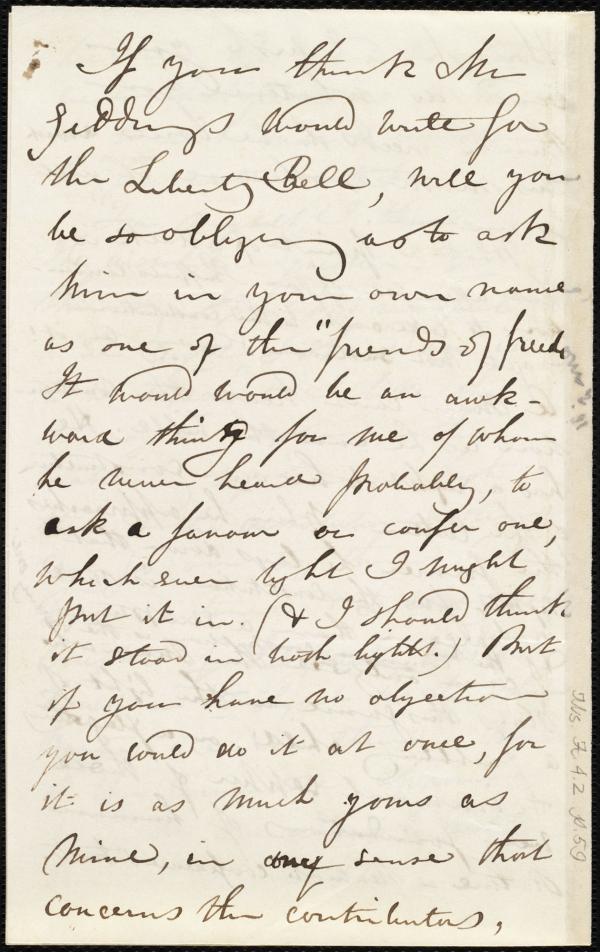 If you think Mr
Giddings would write for
the Liberty Bell, will you
be so obliging as to ask
him in your own name
as one of the "friends of freed
It would would be an awk-
ward thing for me of whom
he never heard probably, to
ask a favour or confer one,
which ever light I might
put it in. (& I should think
it stood in both lights.) But
if you have no objection
you could do it at once, for
it is as much yours as
mine, in any sense that
concerns the contributors,
Ms. A 4.2 p.59